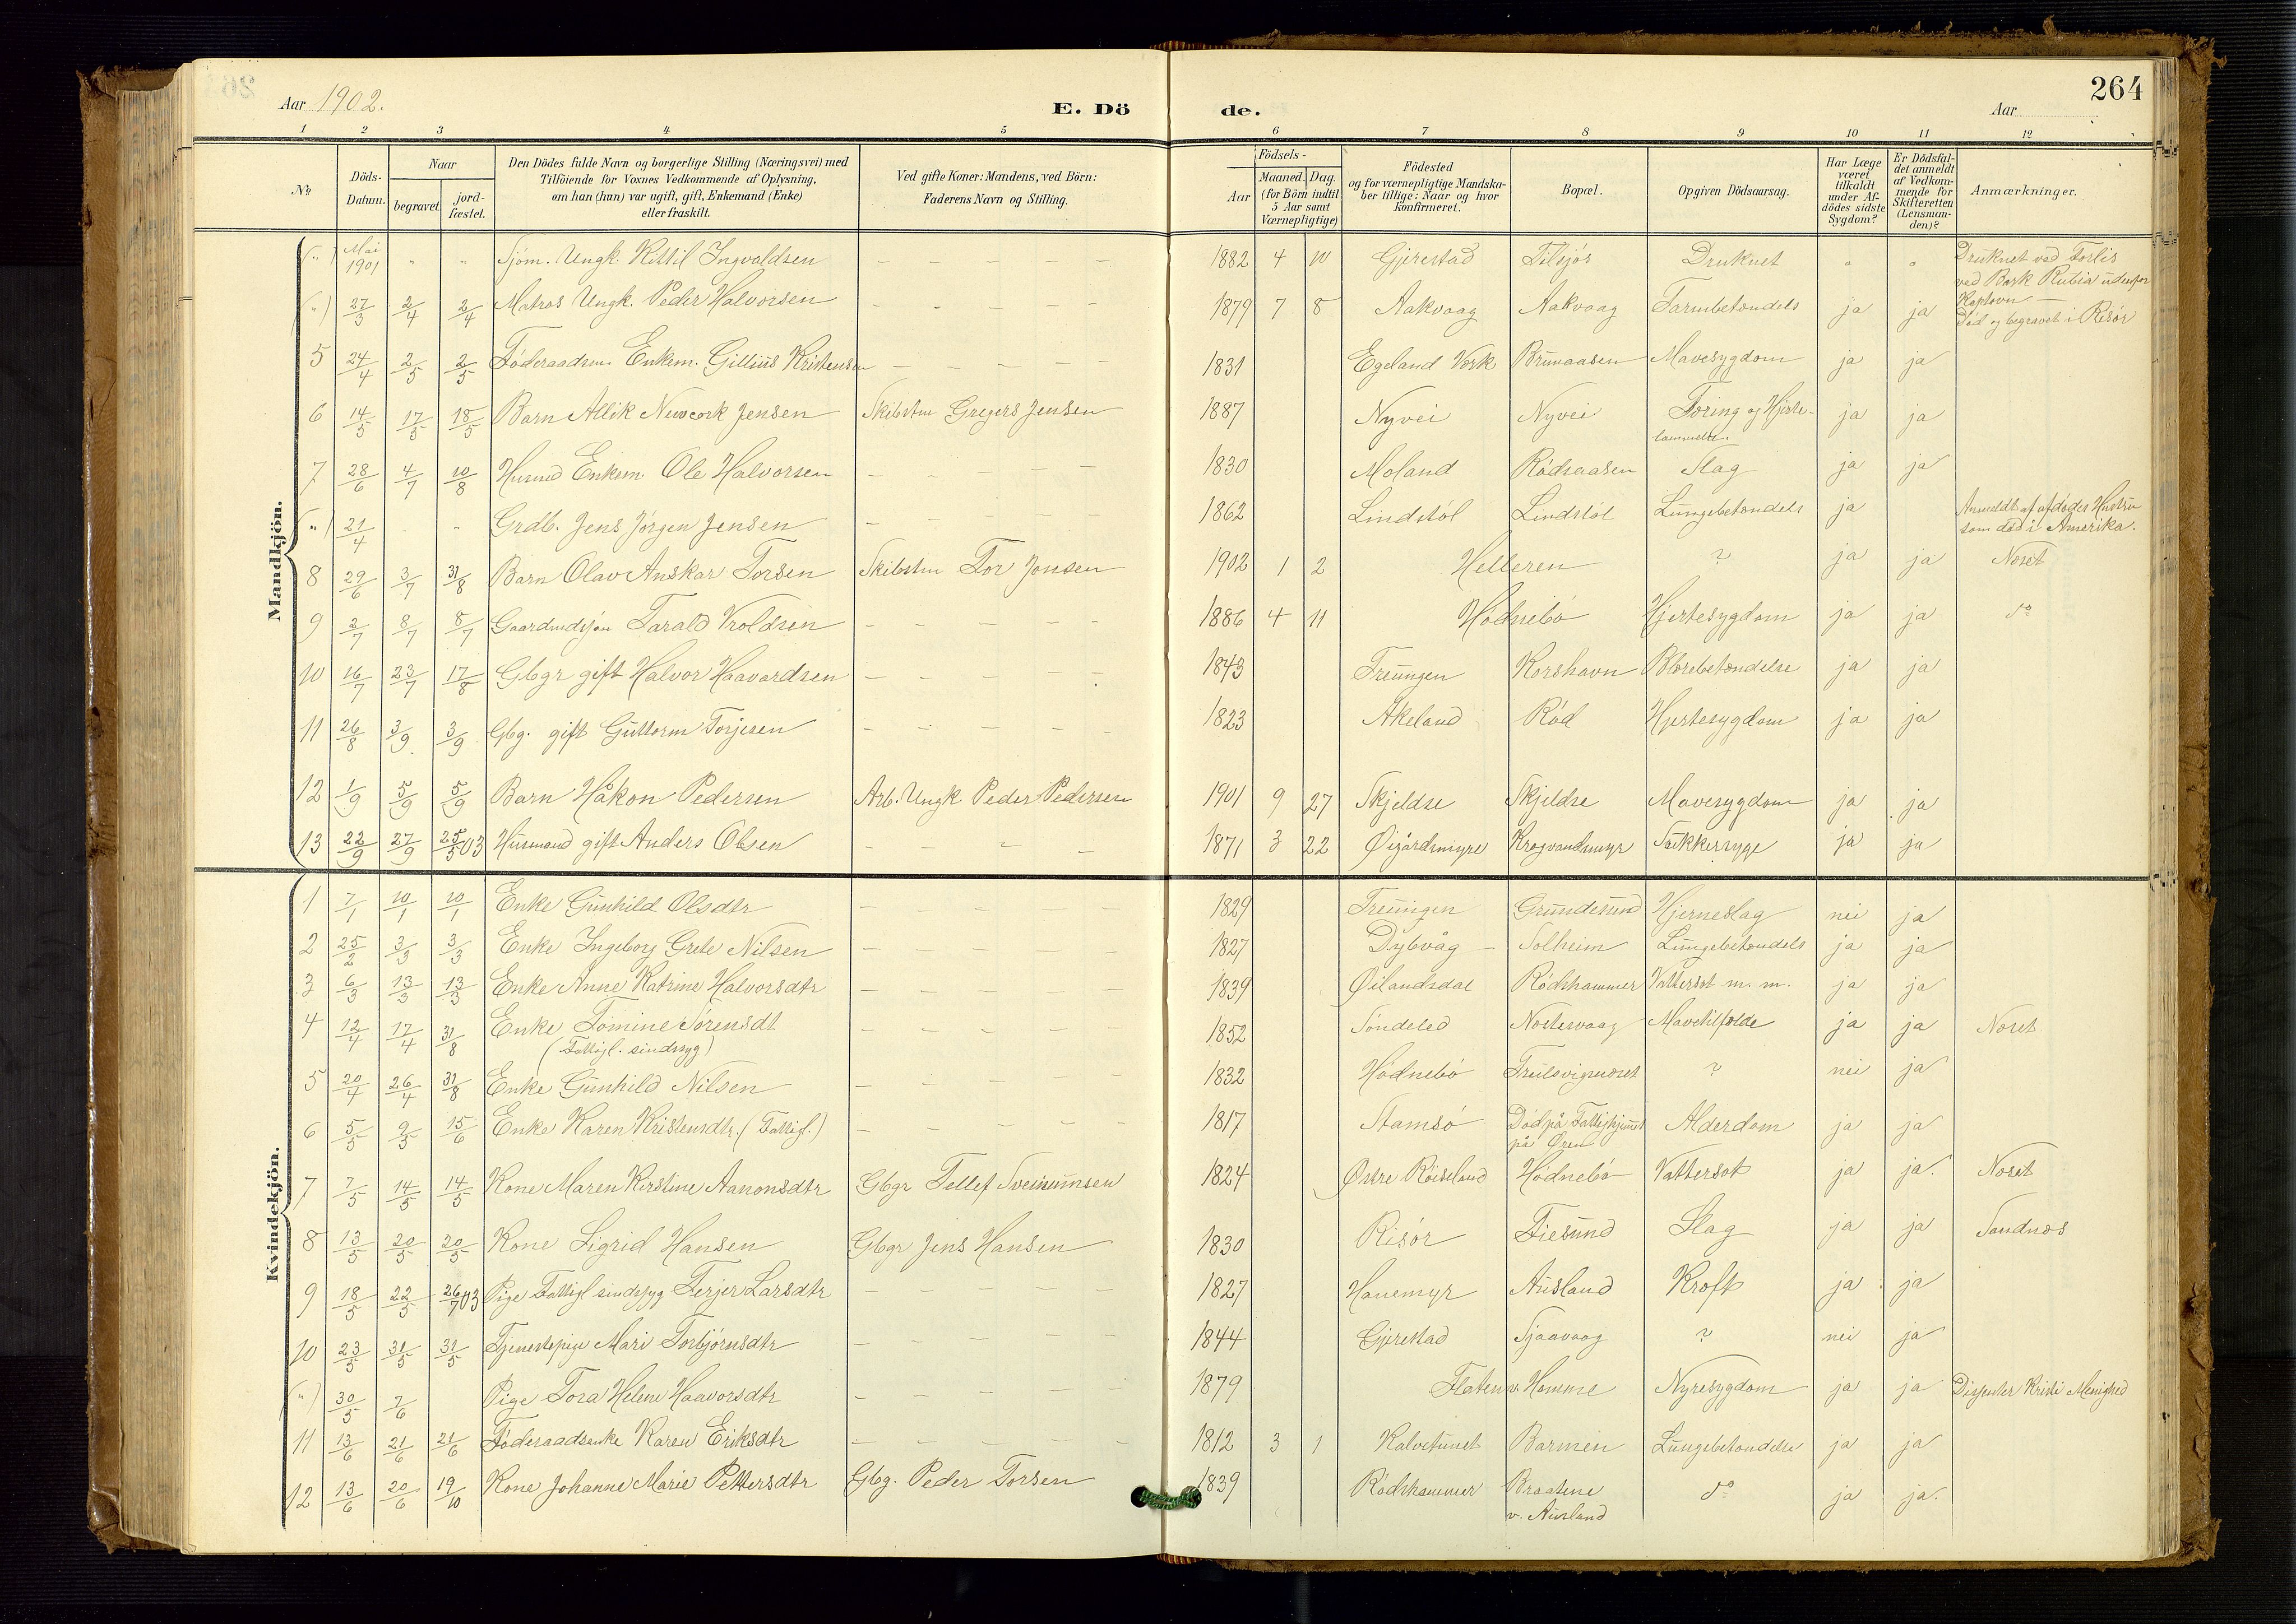 264
Aar 1902.
E. Dö
de.
Aar
1 2 3 4 5 6 7 8 9 10 11 12
No
Döds-Datum.
Naar
begravet.
jord-fæstet.
Den Dödes fulde Navn og borgerlige Stilling (Næringsvei) med
Tilföiende for Voxnes Vedkommende af Oplysning,
om han (hun) var ugift, gift, Enkemand (Enke)
eller fraskilt.
Ved gifte Koner: Mandens, ved Börn:
Faderens Navn og Stilling.
Födsels-
Aar
Maaned. Dag.
(for Börn indtil
5 Aar samt
Værnepligtige)
Födested
og for værnepligtige Mandska-
ber tillige: Naar og hvor
konfirmeret.
Bopæl.
Opgiven Dödsaarsag.
Har Læge
været
tilkaldt
under Af-
dödes sidste
Sygdom?
Er Dödsfal-
det anmeldt
af Vedkom-
mende for
Skifteretten
(Lensman-
den)?
Anmærkninger.
Mandkjön.
(") Mai 1901 " " Sjöm. Ungk. Kittil Ingvaldsen — — — — — 1882 4 10 Gjerestad Druknet " " Druknet ved Forlis
ved Bark Rubia udenfor
(") 27/3 2/4 2/4 Matros Ungk. Peder Halvorsen — — — — — 1879 7 8 Aakvaag Aakvaag Tarmbetændels ja ja Kapløvn —
Död og begravet i Risör
5 24/4 2/5 2/5 Föderaadsm. Enkem. Gillius Kristensen — — — — 1831 Egeland Verk Brunaasen Mavesygdom ja ja
6 14/5 17/5 18/5 Barn Allik Newcork Jensen Skibstm Gregers Jensen 1887 Nyvei Nyvei Tæring og Hjerte-
lammelse. ja ja
7 28/6 4/7 10/8 Husmd Enkem. Ole Halvorsen — — — — — 1830 Moland Rödsaasen Slag ja ja
(") 21/4 " " Grdb. Jens Jörgen Jensen — — — — — 1862 Lindstöl Lindstöl Lungebetændels ja Anmeldt af afdödes Hustru
som död i Amerika.
8 29/6 3/7 31/8 Barn Olav Anskar Torsen Skibstm Tor Jonsen 1902 1 2 Helleren ? ja ja Noset
9 2/7 8/7 8/7 Gaardmdsön Tarald Vroldsen — — — — — 1886 4 11 Hödnebö Hjertesygdom ja ja do
10 16/7 23/7 17/8 Gbgr gift Halvor Haavardsen — — — — — 1843 Treungen Korshavn Blærebetændelse ja ja
11 26/8 3/9 3/9 Gbg. gift Guttorm Torjesen — — — — — 1823 Akeland Röd Hjertesygdom ja ja
12 1/9 5/9 5/9 Barn Håkon Pedersen Arb. Ungk. Peder Pedersen 1901 9 27 Skjeldse Skjeldse Mavesygdom ja ja
13 22/9 27/9 25/5 03 Husmand gift Anders Olsen — — — — 1871 3 22 Øigårdsmyre Krogvandsmyr Sukkersyge ja ja
Kvindekjön.
1 7/1 10/1 10/1 Enke Gunhild Olsdtr — — — — — 1829 Treungen Grundesund Hjerneslag nei ja
2 25/2 3/3 3/3 Enke Ingeborg Grete Nilsen — — — — — 1827 Dybvåg — Solheim Lungebetændels ja ja
3 6/3 13/3 13/3 Enke Anne Katrine Halvorsdtr — — — — — 1839 Øilandsdal Rödshammer Vattersot m. m. ja ja
4 12/4 17/4 31/8 Enke Tomine Sörensdt — — — — — 1852 Söndeled Mavetilfælde ja ja Noset
(Fattigl. sindssyg)
5 20/4 26/4 31/8 Enke Gunhild Nilsen — — — — — 1832 Hödnebö ? nei ja
6 5/5 9/5 15/6 Enke Karen Kristensdtr. (Fattigl.) — — — — — 1817 Stamsö Död på Fattighjemet
på Øren Alderdom ja ja
7 7/5 14/5 14/5 Kone Maren Kirstine Aanonsdtr Gbgr Tellef Sveinumsen 1824 Østre Röiseland Hödnebö Vattersot ja ja. Noset
8 13/5 20/5 20/5 Kone Sigrid Hansen Gbgr Jens Hansen 1830 Risör Fiesund Slag ja ja Sandnæs
9 18/5 22/5 26/7 03 Pige Fattigl sindssyg Terjer Larsdtr — — — — — 1827 Hanemyr Ausland Kræft ja ja
10 23/5 31/5 31/5 Tjenestepige Mari Torbjörnsdtr — — — — — 1844 Gjerestad Sjaavaag ? nei ja
(") 30/5 7/6 Pige Tora Helene Haavorsdtr — — — — — 1879 Flaten v. Homme Nyresygdom ja ja Dissenter Kristi Menighed
11 13/6 21/6 21/6 Föderaadsenke Karen Eriksdtr — — — — — 1812 3 1 Kalvetunet Barmen Lungebetændelse ja ja
12 13/6 20/6 19/10 Kone Johanne Marie Pettersdtr Gbg. Peder Torsen 1839 Rödshammer Braatene
v. Ausland do ja ja.